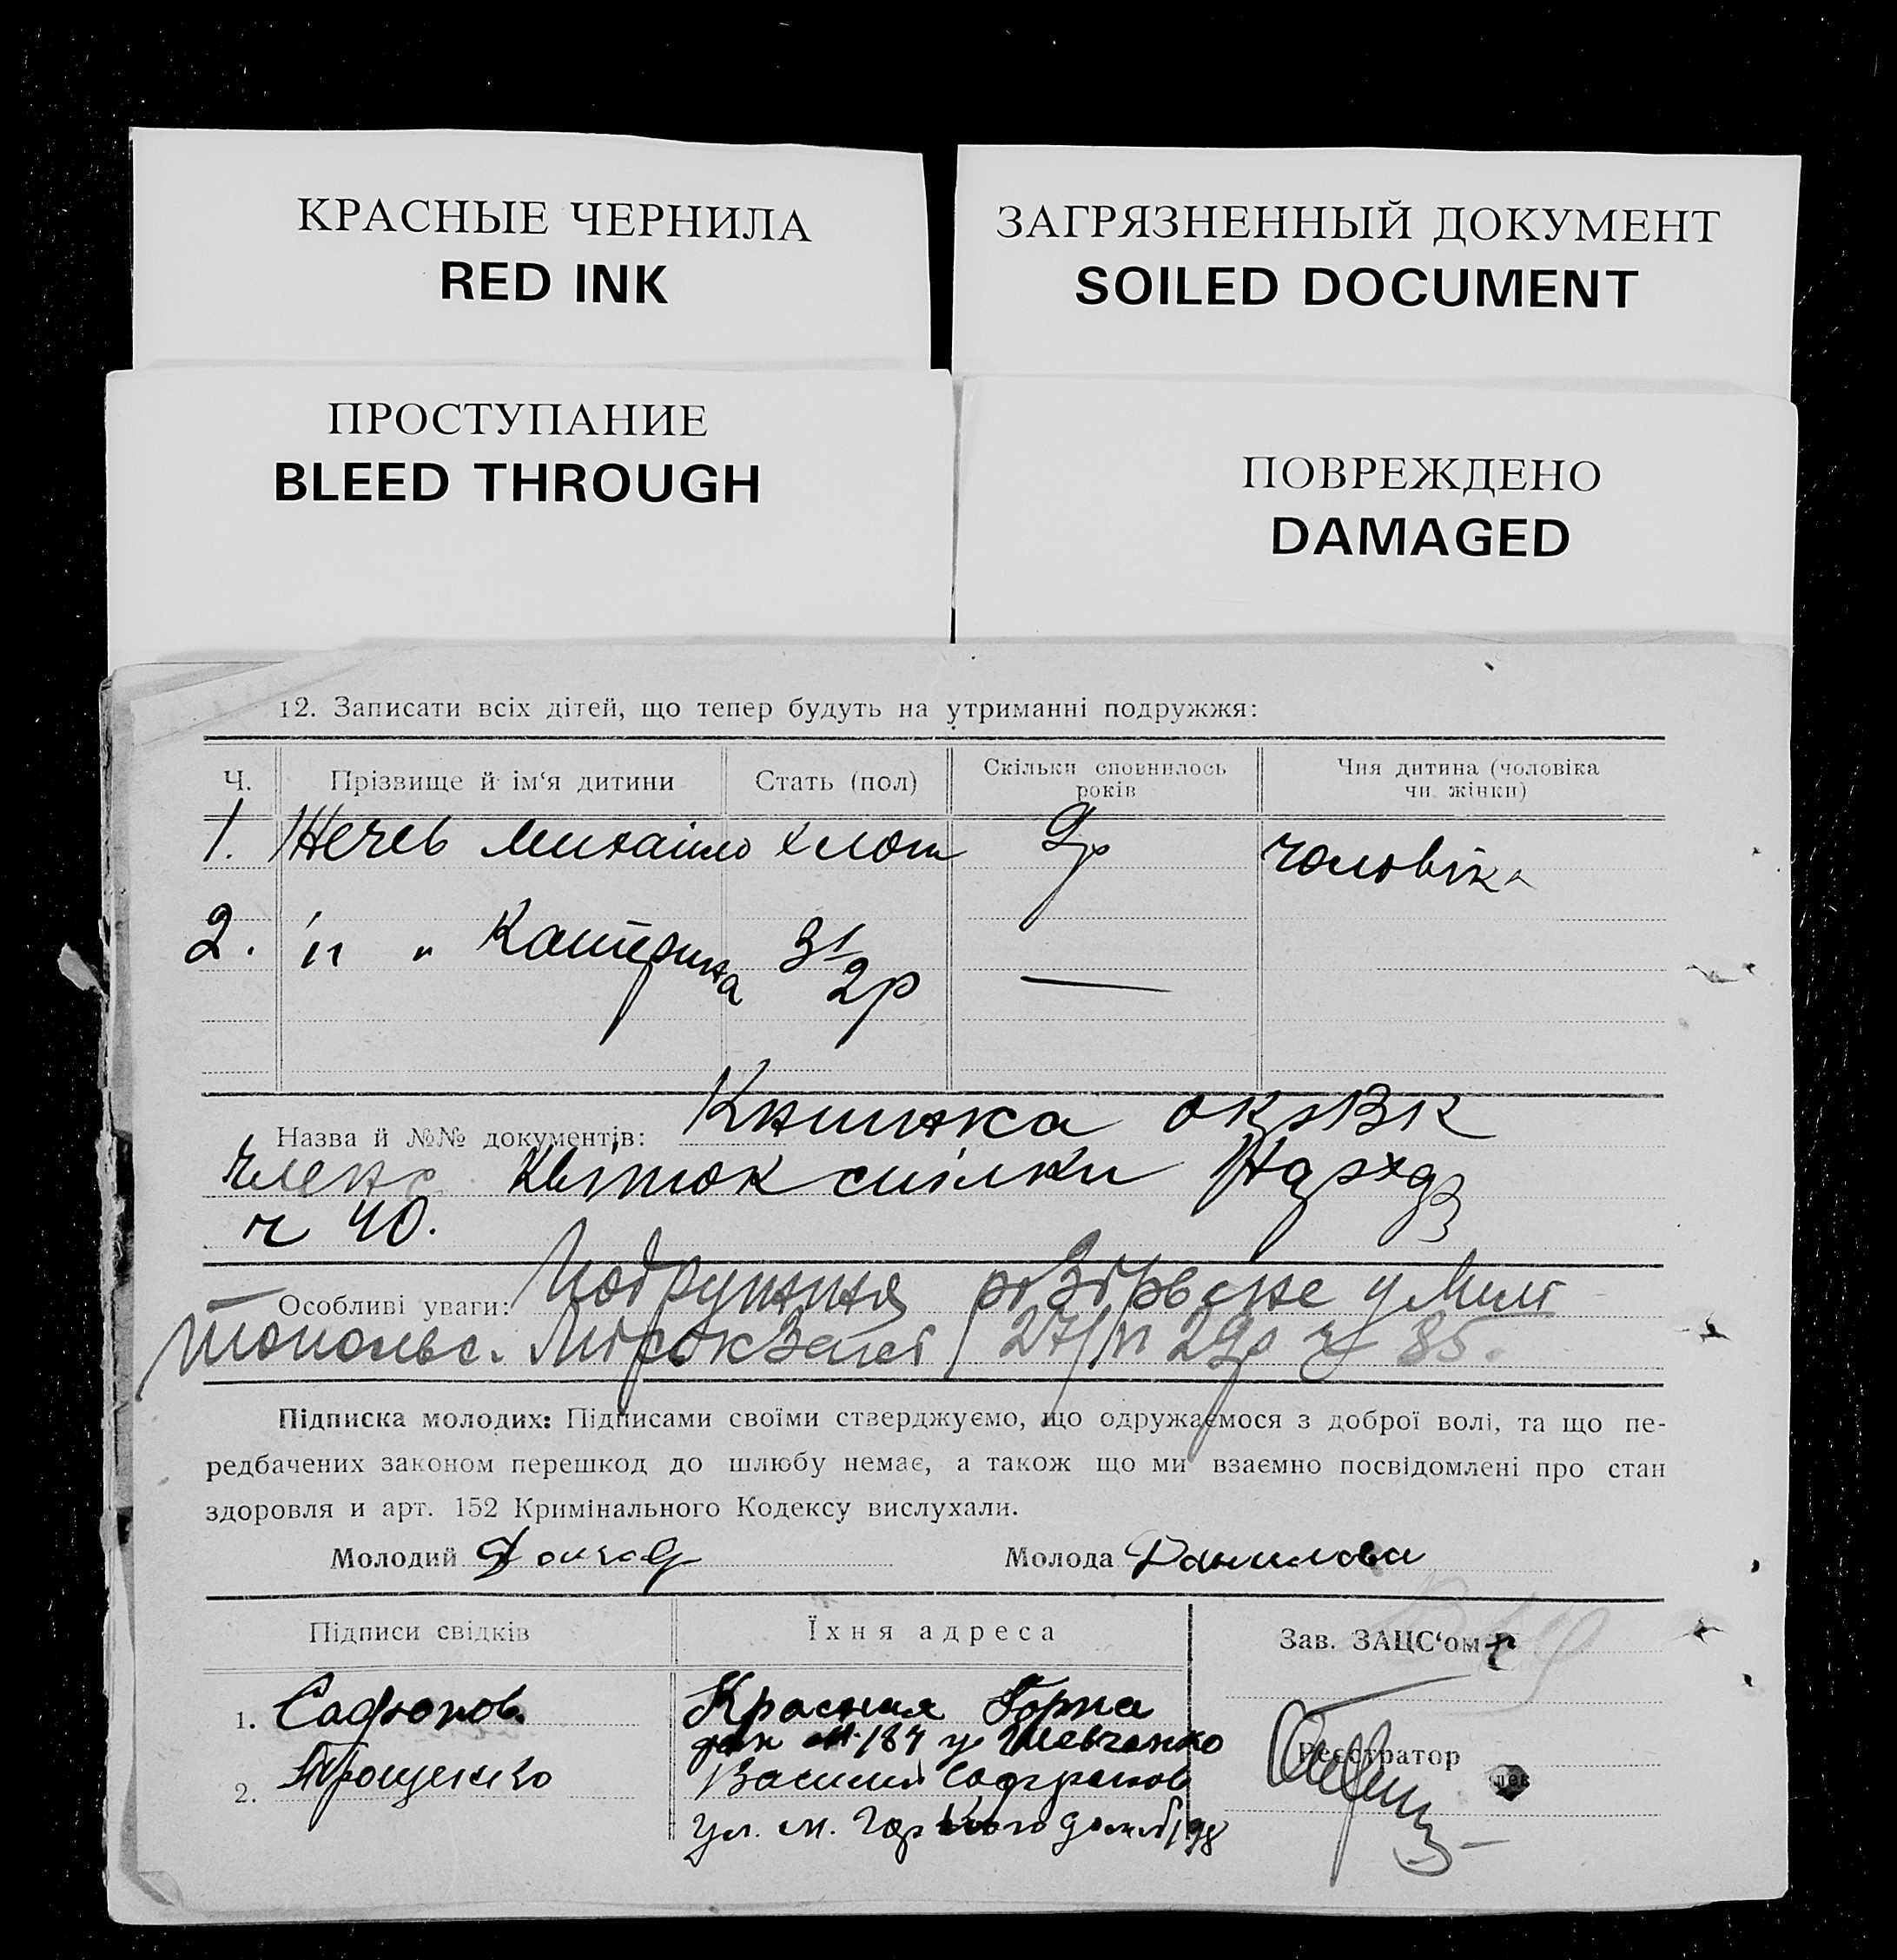 КРАСНЫЕ ЧЕРНИЛА
RED INK
ЗАГРЯЗНЕННЫЙ ДОКУМЕНТ
SOILED DOCUMENT
ПРОСТУПАНИЕ
BLEED THROUGH
ПОВРЕЖДЕНО
DAMAGED
12. Записати всіх дітей, що тепер будуть на утриманні подружжя:
Ч. Прізвище й ім‘я дитини Стать (пол) Скільки сповнилось років Чия дитина (чоловіка чи жінки)
1. Михайло хлоп 9р чоловіка
2. " " Катерина 3 1/2р —
Назва й №№ документів: Книжка
членс квиток спілки
ч 40.
Особливі уваги: Подружжя розірване у
27/VI 29р ч 85.
Підписка молодих: Підписами своїми стверджуємо, що одружаємося з доброї волі, та що пе-
редбачених законом перешкод до шлюбу немає, а також що ми взаємно посвідомлені про стан
здоровля и арт. 152 Кримінального Кодексу вислухали.
Молодий
Молода Данилова
Підписи свідків Їхня адреса Зав. ЗАЦС‘ом
1. Сафронов Красная Горка
187 у Шевченко
2. Трощенко Василий Сафронов
ул. М. Горького 198
Реєстратор